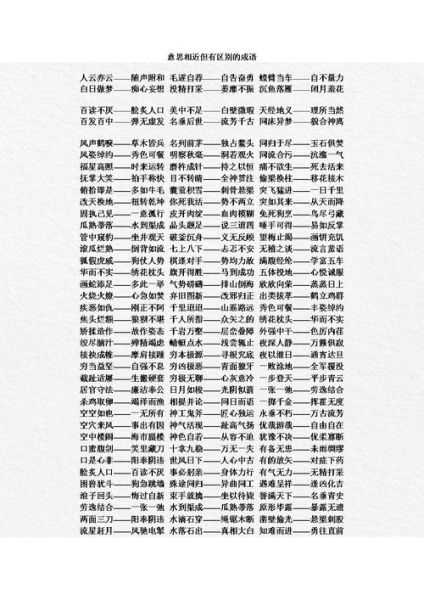 意思相近但有区别的成语
人云亦云——随声附和 毛遂自荐——自告奋勇 螳臂当车——自不量力
白日做梦——痴心妄想 没精打采——萎靡不振 沉鱼落雁——闭月羞花
百读不厌——脍炙人口 美中不足——白璧微瑕 天经地义——理所当然
百发百中——弹无虚发 名垂后世——流芳千古 同床异梦——貌合神离
风声鹤唳——草木皆兵 名列前茅——独占鳌头 同归于尽——玉石俱焚
风姿绰约——秀色可餐 明察秋毫——洞若观火 同流合污——抗瀣一气
福星高照——时来运转 磨杵成针——持之以恒 痛不欲生——死去活来
抚掌大笑——拍手称快 目不转睛——全神贯注 偷梁换柱——移花接木
俯拾即是——多如牛毛 囊萤积雪——刺骨悬梁 突飞猛进——一日千里
改天换地——扭转乾坤 你死我活——势不两立 突如其来——从天而降
固执己见——一意孤行 皮开肉绽——血肉模糊 兔死狗烹——鸟尽弓藏
瓜熟蒂落——水到渠成 品头题足——说三道四 唾手可得——易如反掌
管中窥豹——坐井观天 破釜沉舟——义无反顾 望梅止渴——画饼充饥
滚瓜烂熟——倒背如流 七上八下——忐忑不安 无稽之谈——流言蜚语
狐假虎威——狗仗人势 棋逢对手——势均力敌 满腹经纶——学富五车
华而不实——绣花枕头 旗开得胜——马到成功 五体投地——心悦诚服
画蛇添足——多此一举 气势磅礴——排山倒海 欣欣向荣——蒸蒸日上
火烧火燎——心急如焚 弃旧图新——改邪归正 出类拔萃——鹤立鸡群
疾恶如仇——刚正不阿 千里迢迢——山遥路远 秀色可餐——丰姿绰约
焦头烂额——狼狈不堪 千人所指——众矢之的 绣花枕头——华而不实
矫揉造作——故作姿态 千岩万壑——层峦叠嶂 外强中干——色厉内荏
绞尽脑汁——殚精竭虑 蜻蜓点水——浅尝辄止 夜深人静——万籁俱寂
接袂成帷——摩肩接踵 穷本极源——寻根究底 夜以继日——通宵达旦
穷当益坚——自强不息 穷凶极恶——青面獠牙 一败涂地——全军覆没
截趾适屦——生搬硬套 穷极无聊——心灰意冷 一步登天——平步青云
居官守法——廉洁奉公 日月如梭——光阴似箭 一张一弛——劳逸结合
杀鸡取卵——竭泽而渔 相提并论——同日而语 一掷千金——挥霍无度
空空如也——一无所有 神工鬼斧——匠心独运 永垂不朽——万古流芳
空穴来风——事出有因 神气活现——趾高气扬 优哉游哉——自由自在
空中楼阁——海市蜃楼 神色自若——从容不迫 犹豫不决——优柔寡断
口蜜腹剑——笑里藏刀 十拿九稳——万无一失 有备无患——未雨绸缪
口是心非——阳奉阴违 世风日下——人心不古 有的放矢——对症下药
脍炙人口——百读不厌 事必躬亲——身体力行 有气无力——无精打采
困兽犹斗——狗急跳墙 殊途同归——异曲同工 遇难呈祥——逢凶化吉
浪子回头——悔过自新 束手就擒——坐以待毙 誉满天下——名垂青史
劳逸结合——一张一弛 水到渠成——瓜熟蒂落 原形毕露——暴露无遗
两面三刀——阳奉阴违 水滴石穿——绳锯木断 凿壁偷光——悬梁刺股
流星赶月——风驰电掣 水落石出——真相大白 知难而进——勇往直前